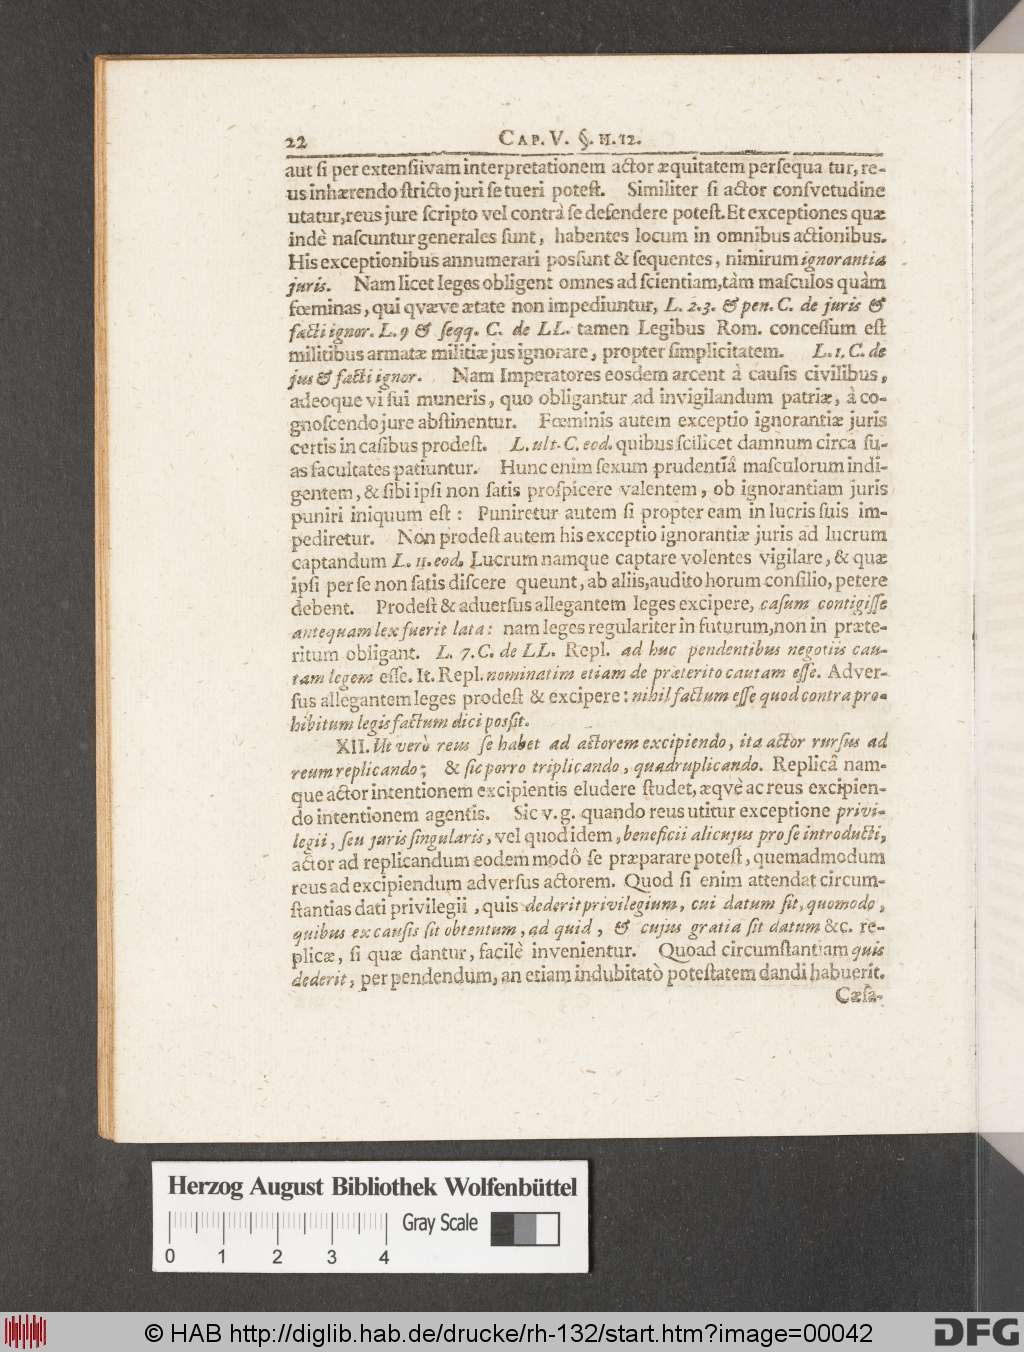 22 CAP. V. §. II. 12.
aut ſi per extenſiivam interpretationem actor æquitatem perſequa tur, re-
us inhærendo ſtricto juri ſe tueri poteſt. Similiter ſi actor conſvetudine
utatur, reus jure ſcripto vel contrà ſe defendere poteſt. Et exceptiones quæ
indè naſcuntur generales ſunt, habentes locum in omnibus actionibus.
His exceptionibus annumerari poſſunt & ſequentes, nimirum ignorantia
juris. Nam licet leges obligent omnes ad ſcientiam, tàm maſculos quàm
fœminas, qui qvæve ætate non impediuntur, L. 2. 3. & pen. C. de juris &
facti ignor. L. 9 & ſeqq. C. de LL. tamen Legibus Rom. conceſſum eſt
militibus armatæ militiæ jus ignorare, propter ſimplicitatem. L. 1. C. de
jus & facti ignor. Nam Imperatores eosdem arcent à cauſis civilibus,
adeoque vi ſui muneris, quo obligantur ad invigilandum patriæ, à co-
gnoſcendo jure abſtinentur. Fœminis autem exceptio ignorantiæ juris
certis in caſibus prodeſt. L. ult. C. eod. quibus ſcilicet damnum circa ſu-
as facultates patiuntur. Hunc enim ſexum prudentiâ maſculorum indi-
gentem, & ſibi ipſi non ſatis proſpicere valentem, ob ignorantiam juris
puniri iniquum eſt: Puniretur autem ſi propter eam in lucris ſuis im-
pediretur. Non prodeſt autem his exceptio ignorantiæ juris ad lucrum
captandum L. 11. eod. Lucrum namque captare volentes vigilare, & quæ
ipſi per ſe non ſatis diſcere queunt, ab aliis, audito horum conſilio, petere
debent. Prodeſt & aduerſus allegantem leges excipere, caſum contigiſſe
antequam lex fuerit lata: nam leges regulariter in futurum, non in præte-
ritum obligant. L. 7. C. de LL. Repl. ad huc pendentibus negotiis cau-
tam legem eſſe. It. Repl. nominatim etiam de præterito cautam eſſe. Adver-
ſus allegantem leges prodeſt & excipere: nihil factum eſſe quod contra pro-
hibitum legis factum dici poſſit.
XII. Ut verò reus ſe habet ad actorem excipiendo, ita actor rurſus ad
reum replicando; & ſic porro triplicando, quadruplicando. Replicâ nam-
que actor intentionem excipientis eludere ſtudet, æqvè ac reus excipien-
do intentionem agentis. Sic v. g. quando reus utitur exceptione privi-
legii, ſeu juris ſingularis, vel quod idem, beneficii alicujus pro ſe introducti,
actor ad replicandum eodem modô ſe præparare poteſt, quemadmodum
reus ad excipiendum adverſus actorem. Quod ſi enim attendat circum-
ſtantias dati privilegii, quis dederit privilegium, cui datum ſit, quomodo,
quibus ex cauſis ſit obtentum, ad quid, & cujus gratia ſit datum &c. re-
plicæ, ſi quæ dantur, facilè invenientur. Quoad circumſtantiam quis
dederit, perpendendum, an etiam indubitatò poteſtatem dandi habuerit.
Cæſa-
Herzog August Bibliothek Wolfenbüttel
Gray Scale
0 1 2 3 4
© HAB http://diglib.hab.de/drucke/rh-132/start.htm?image=00042
DFG